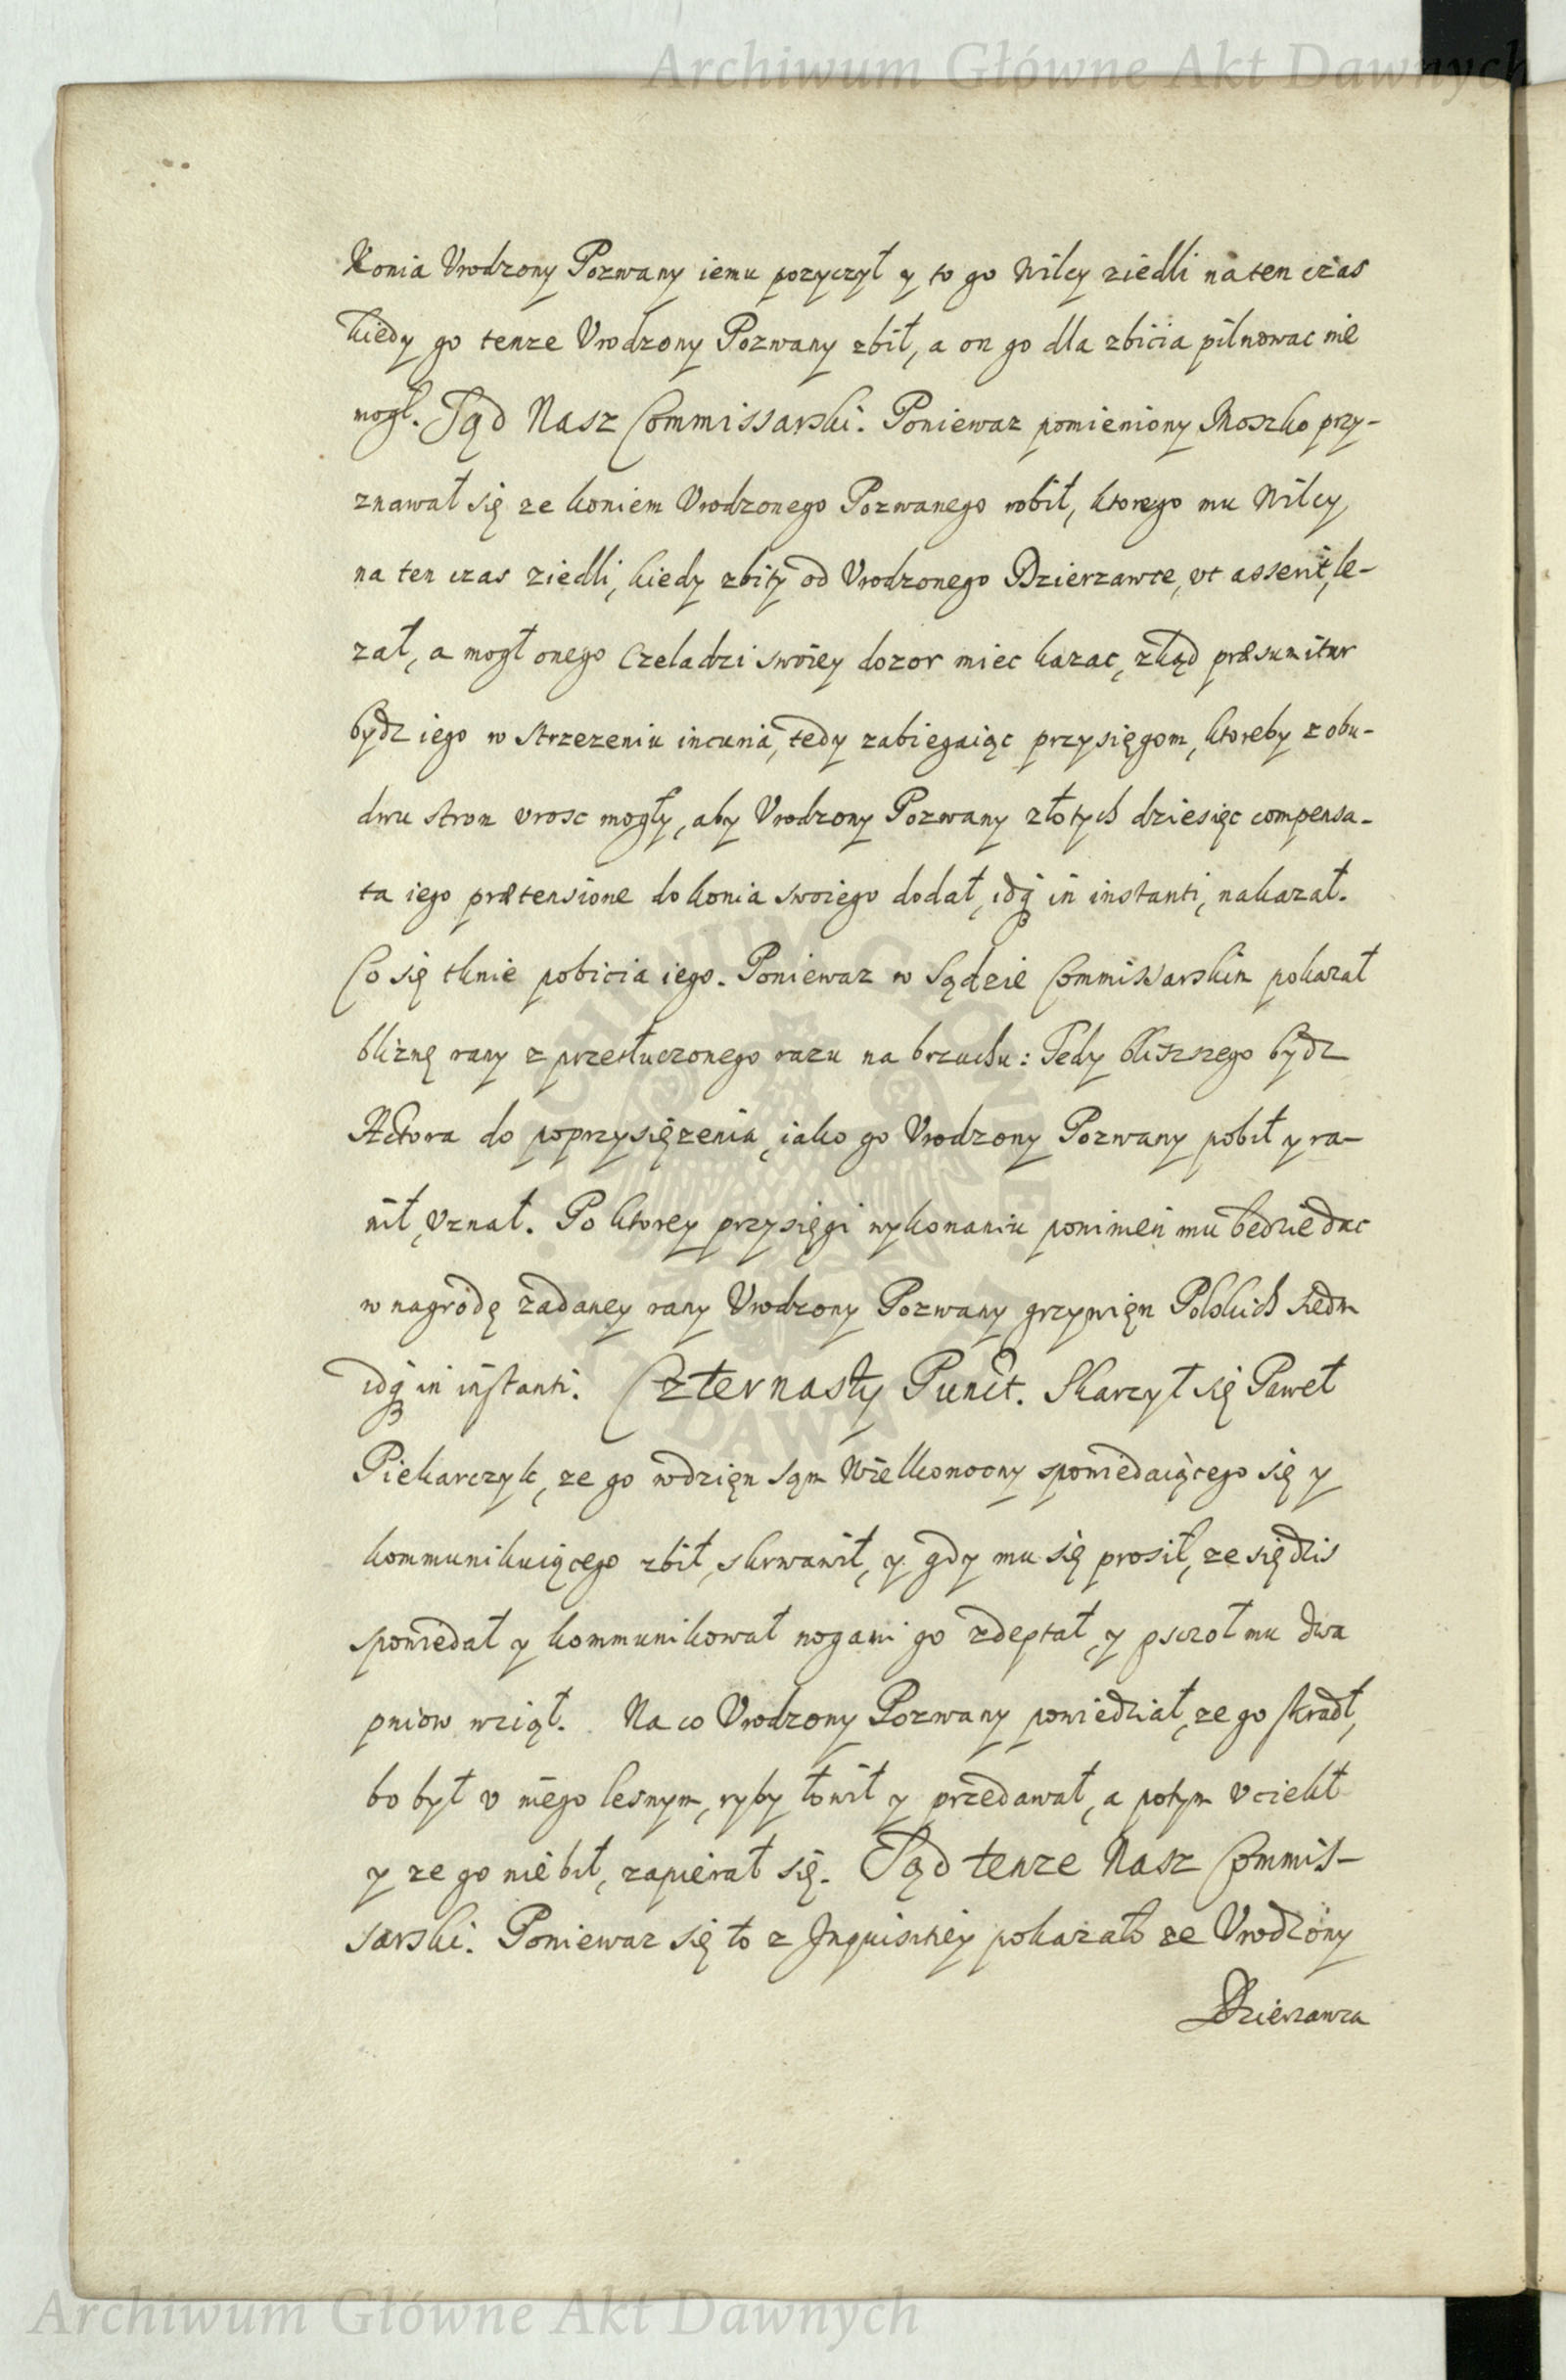 Archiwum Główne Akt Dawnych
Konia Vrodzony Pozwany iemu pozyczył y to go Wilcy ziedli na ten czas
kiedy go tenze Vrodzony Pozwany zbił, a on go dla zbicia pilnowac nie
mogł. Sąd Nasz Commissarski. Poniewaz pomieniony Moszko przy-
znawał się ze koniem Vrodzonego Pozwanego robił, ktorego mu Wilcy
na ten czas ziedli, kiedy zbity od Vrodzonego Dzierzawce, vt asserit, le-
zał, a mogł onego Czeladzi swoiey dozor miec kazac, zkąd præsumitur
bydz iego w strzezeniu incuria, tedy zabiegaiąc przysięgom, ktoreby z obu-
dwu stron vrosc mogły, aby Vrodzony Pozwany złotych dziesięc compensa-
ta iego prætensione do konia swoiego dodał, idq3 in instanti, nakazał.
Co się tknie pobicia iego. Poniewaz w Sądzie Commissarskim pokazał
bliznę rany z przetłuczonego razu na brzuchu: Tedy bliszszego bydz
Actora do poprzysięzenia, iako go Vrodzony Pozwany pobił y ra-
nił, vznał. Po ktorey przysięgi wykonaniu powinien mu bedzie dac
w nagrodę zadaney rany Vrodzony Pozwany grzywięn Polskich siedm
idq3 in instanti. Czternasty Punct. Skarzył się Paweł
Piekarczyk, ze go w dzięn sąm Wielkonocny spowiedaiącego się y
kommunikuiącego zbił, skrwawił, y gdy mu się prosił, ze się dzis
spowiedał y kommunikował nogami go zdeptał, y pszczoł mu dwa
pniow wziął. Na co Vrodzony Pozwany powiedział, ze go skradł,
bo był v niego lesnym, ryby łowił y przedawał, a potym vciekł
y ze go nie bił, zapierał się. Sąd tenze Nasz Commis-
sarski. Poniewaz się to z Inquisitiey pokazało ze Vrodzony
Dzierzawca
Archiwum Główne Akt Dawnych